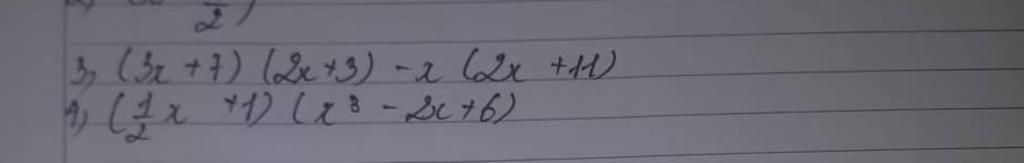 2)
3, (3x + 7) (2x + 3) - x (2x + 11)
4, (1/2 x + 1) (x³ - 2x + 6)